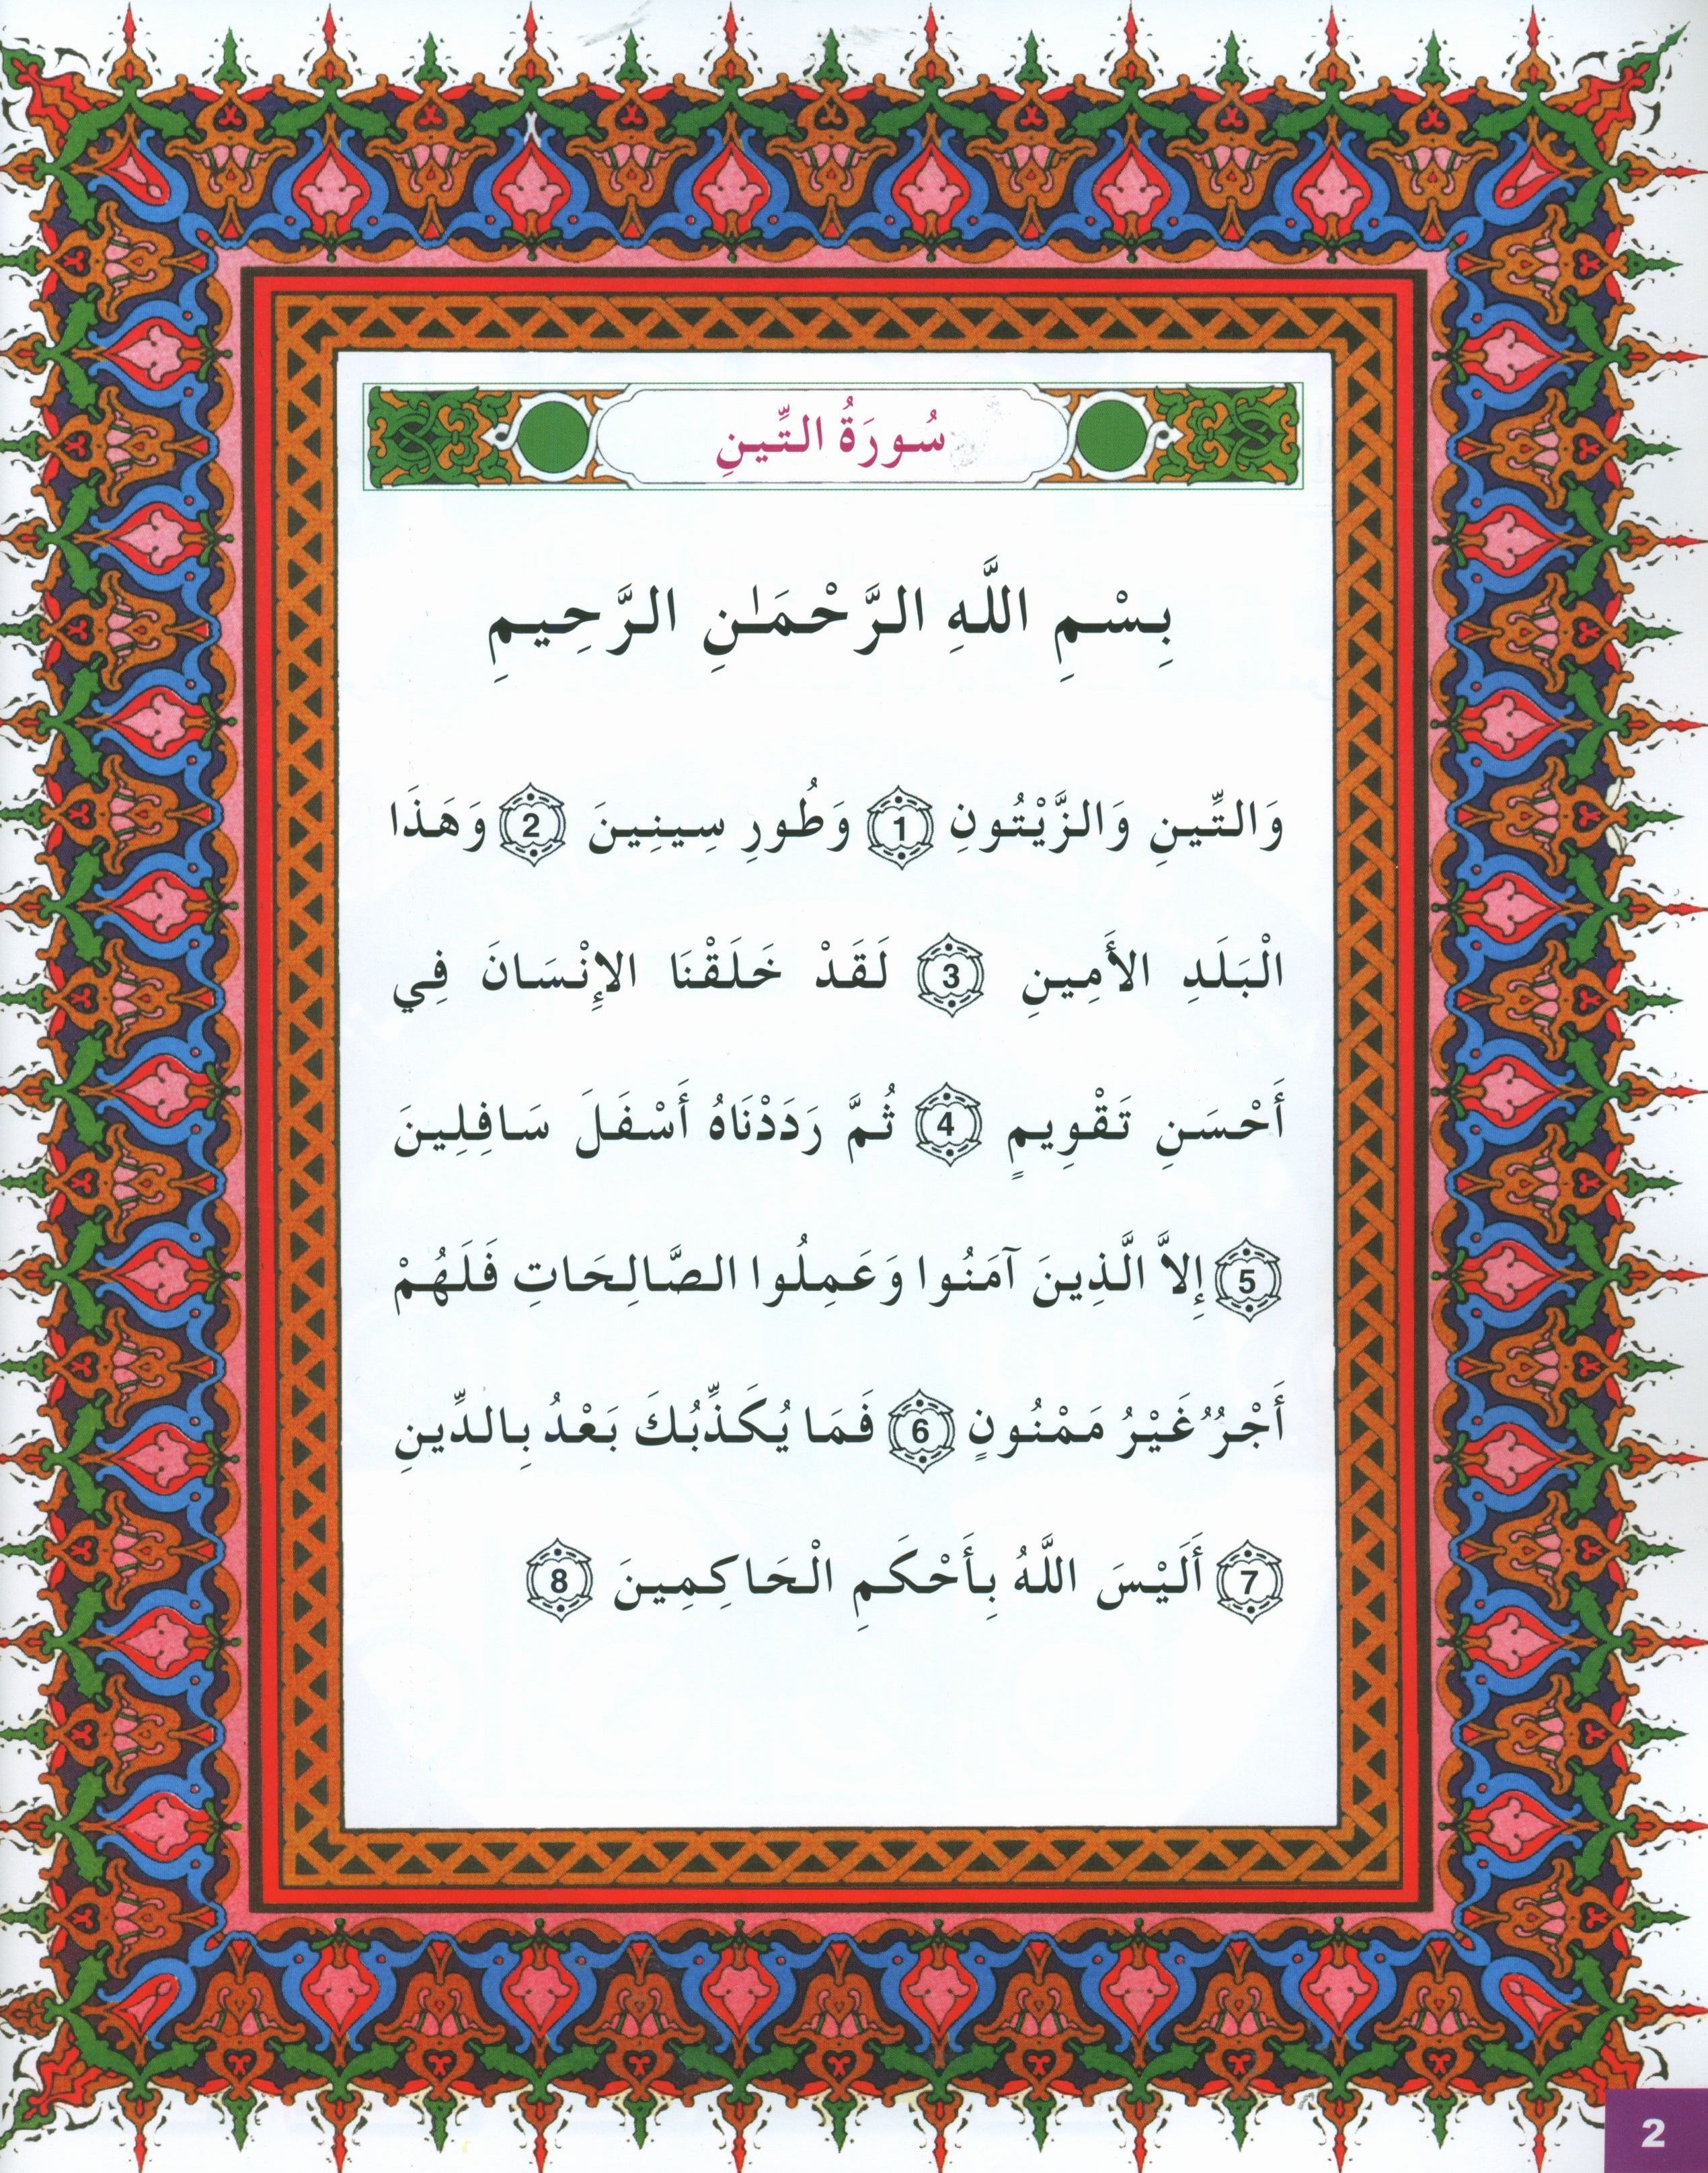 سُورَةُ التِّينِ
بِسْمِ اللَّهِ الرَّحْمَٰنِ الرَّحِيمِ
وَالتِّينِ وَالزَّيْتُونِ 1 وَطُورِ سِينِينَ 2 وَهَذَا
الْبَلَدِ الأَمِينِ 3 لَقَدْ خَلَقْنَا الإِنْسَانَ فِي
أَحْسَنِ تَقْوِيمٍ 4 ثُمَّ رَدَدْنَاهُ أَسْفَلَ سَافِلِينَ
5 إِلاَّ الَّذِينَ آمَنُوا وَعَمِلُوا الصَّالِحَاتِ فَلَهُمْ
أَجْرٌ غَيْرُ مَمْنُونٍ 6 فَمَا يُكَذِّبُكَ بَعْدُ بِالدِّينِ
7 أَلَيْسَ اللَّهُ بِأَحْكَمِ الْحَاكِمِينَ 8
2